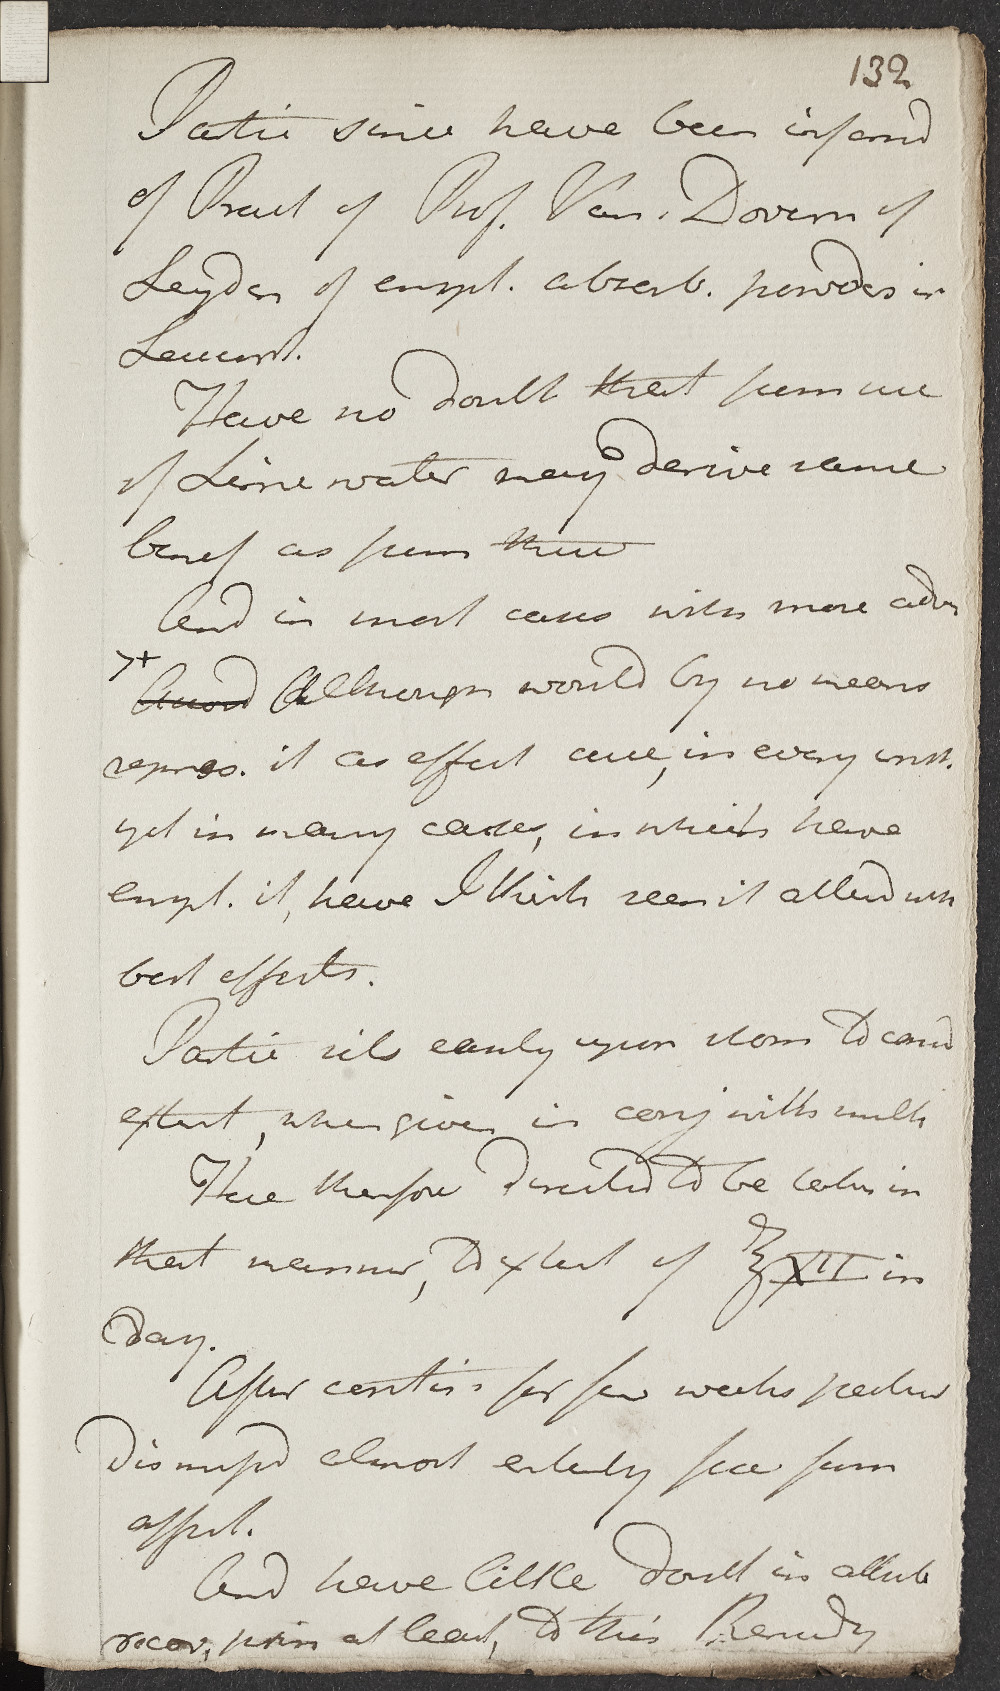 132
Partic since have been informd
of Pract of Prof. Van. Dovern of
Leyden of empl. absorb. powders in
Have no doubt that from use
of Lime water may derive same
benef as from
And in most cases with more adva
7+
Although would by no means
repres. it as effect cure, in every inst.
yet in many cases, in which have
empl. it, have I think seen it attend with
best effects.
Partic sits easily upon stom to consid
extent, when given in conj with milk
Here therefore directed to be taken in
that manner, to extent of ℥XII in
day.
After contin for few weeks patien
dismissd almost entirely free from
affect.
And have little doubt in attrib
recov, prin at least, to this Remedy